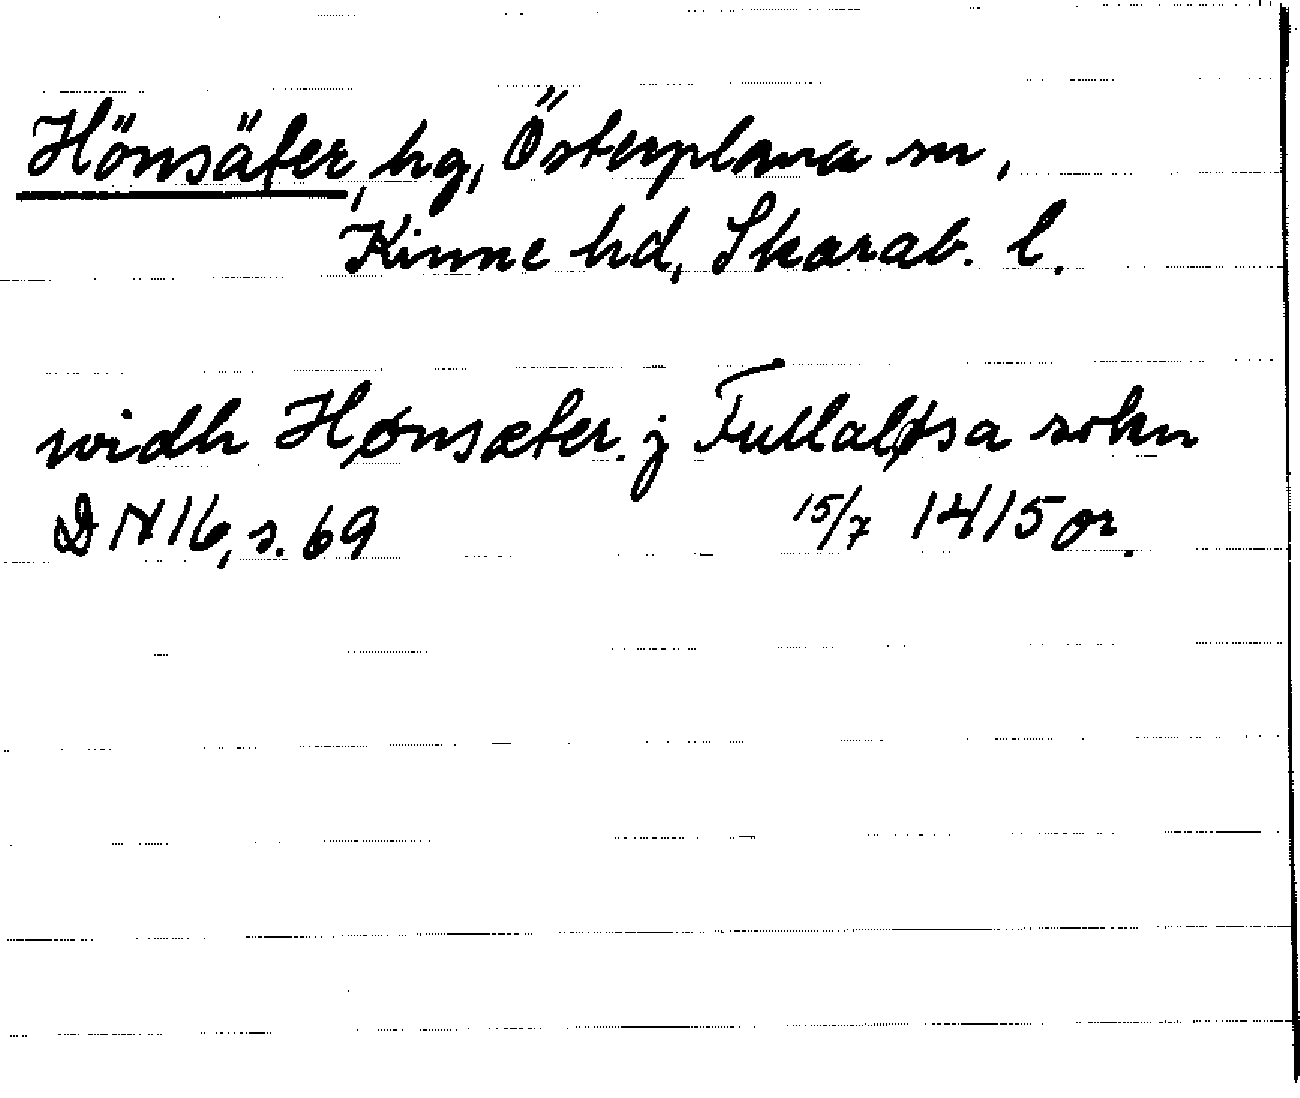 Hönsäter, hg, Österplana sn,
Kinne hd, Skarab. l.
widh Hønsæter. j Fullaløsa sokn
DN 16, s. 69 15/7 1415 or.